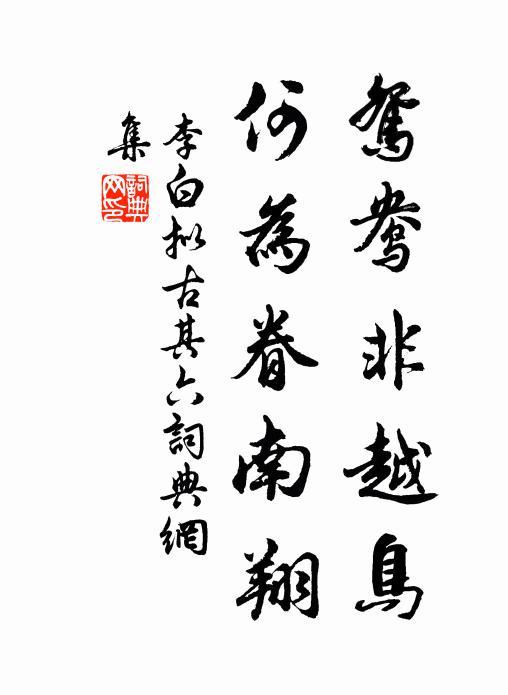 鴛鴦非越鳥
何為眷南翔
李白拟古其六詞典網
集
詞典网印